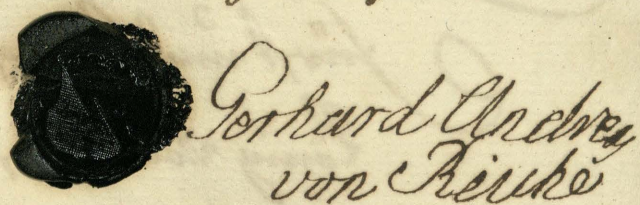 Gerhard Andrey
von Reuke